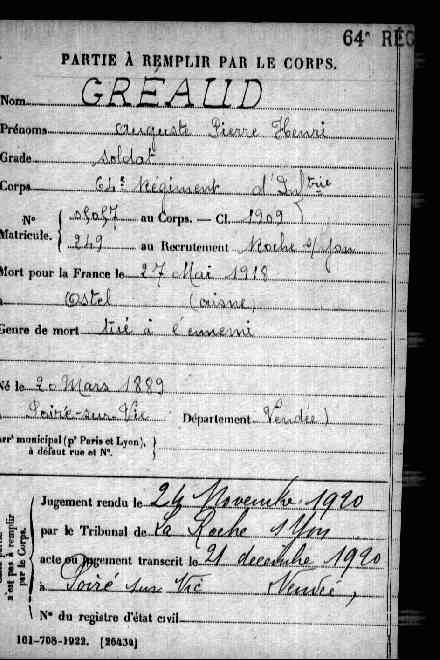 64e RÉG
PARTIE À REMPLIR PAR LE CORPS.
Nom GRÉAUD
Prénoms Auguste Pierre Henri
Grade Soldat
Corps 64e Régiment d'Inftrie
N° Matricule. au Corps. — Cl. 1909
249 au Recrutement Roche s/Yon
Mort pour la France le 27 Mai 1918
à Ostel (Aisne)
Genre de mort tué à l'ennemi
Né le 2 Mars 1889
Poiré-sur-Vie Département Vendée)
arrt municipal (pr Paris et Lyon),
à défaut rue et N°.
n'est pas à remplir
par le Corps.
Jugement rendu le 24 Novembre 1920
par le Tribunal de La Roche s Yon
acte ou jugement transcrit le 21 decembre 1920
à Poiré sur Vie Vendée,
N° du registre d'état civil
101-708-1922. [26434]